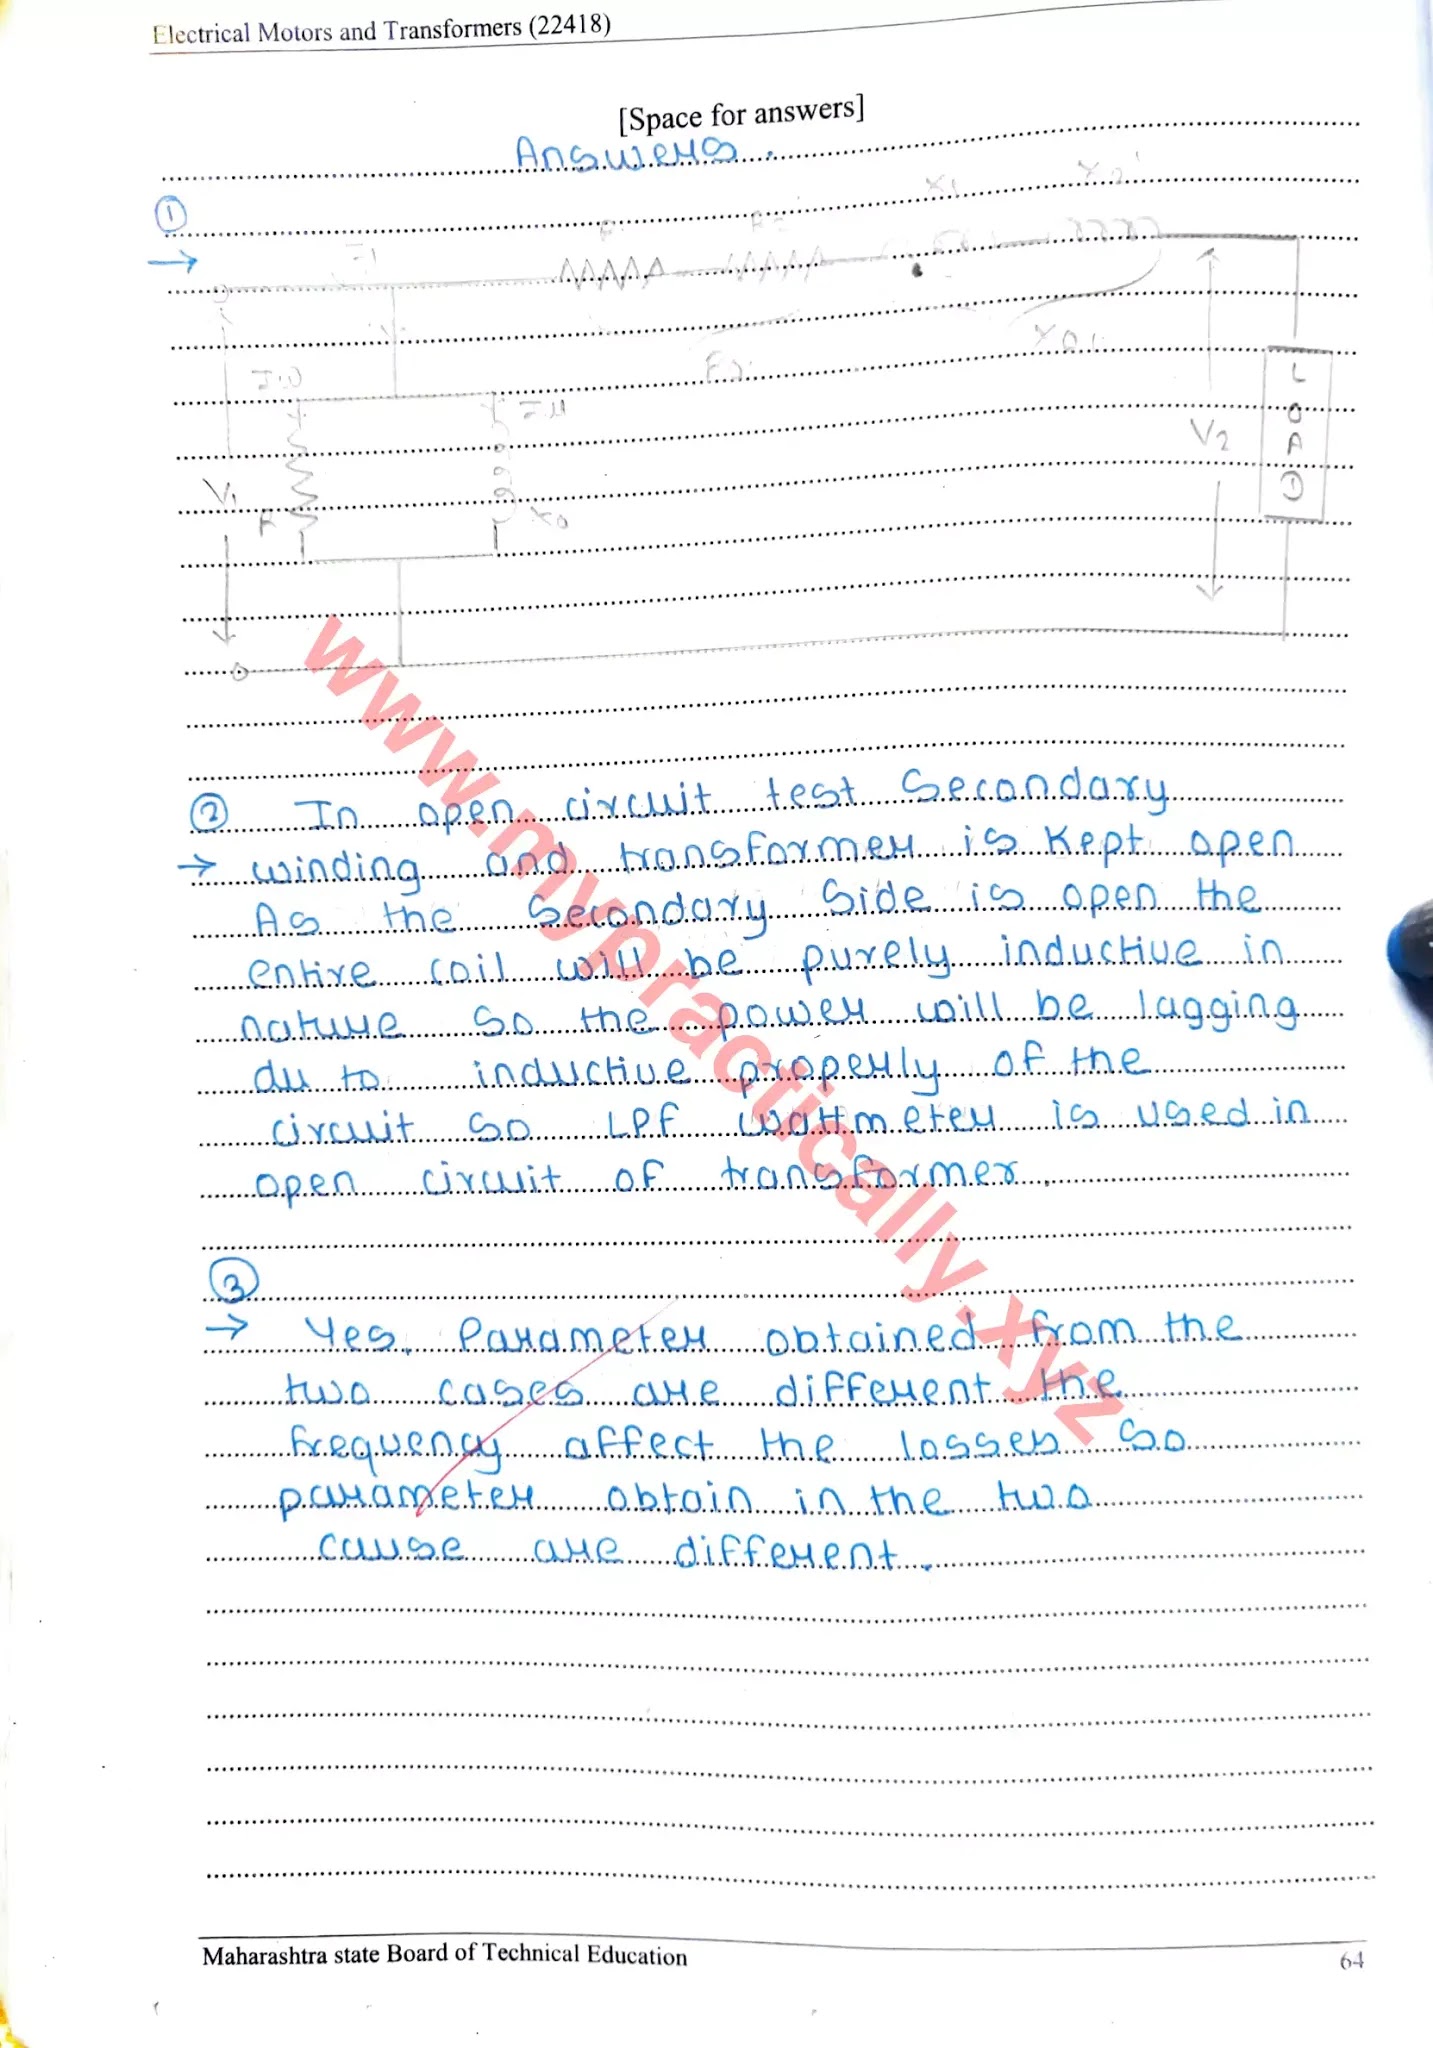 Electrical Motors and Transformers (22418)
[Space for answers]
Answers.
①
→
X1
V2
L
O
A
D
V1
X0
② In open circuit test Secondary
→ winding and transformer is kept open
As the Secondary Side is open the
entire coil will be purely inductive in
nature so the power will be lagging
du to inductive properly of the
circuit so LPF wattmeter is used in
open circuit of transformer.
③
→ Yes, Parameter obtained from the
two cases are different the
frequency affect the losses so
parameter obtain in the two
cause are different.
www.mypractically.xyz
Maharashtra state Board of Technical Education
64